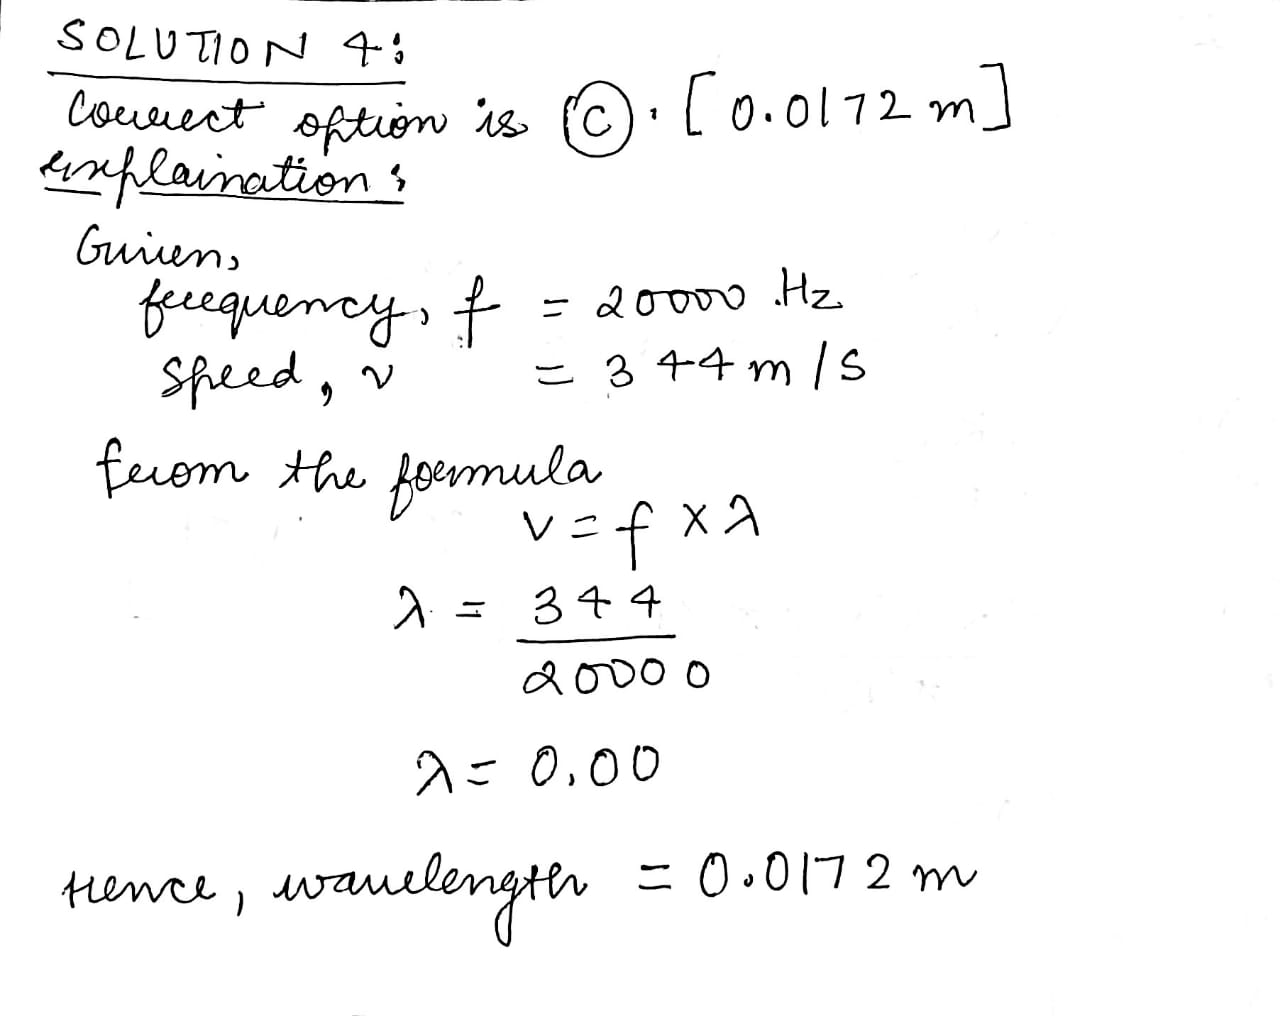 SOLUTION 4:
Correct option is (C). [0.0172 m]
explaination:
Given,
frequency, f = 20000 Hz
Speed, v = 344 m/s
from the formula
v = f × λ
λ = 344
20000
λ = 0.00
Hence, wavelength = 0.0172 m